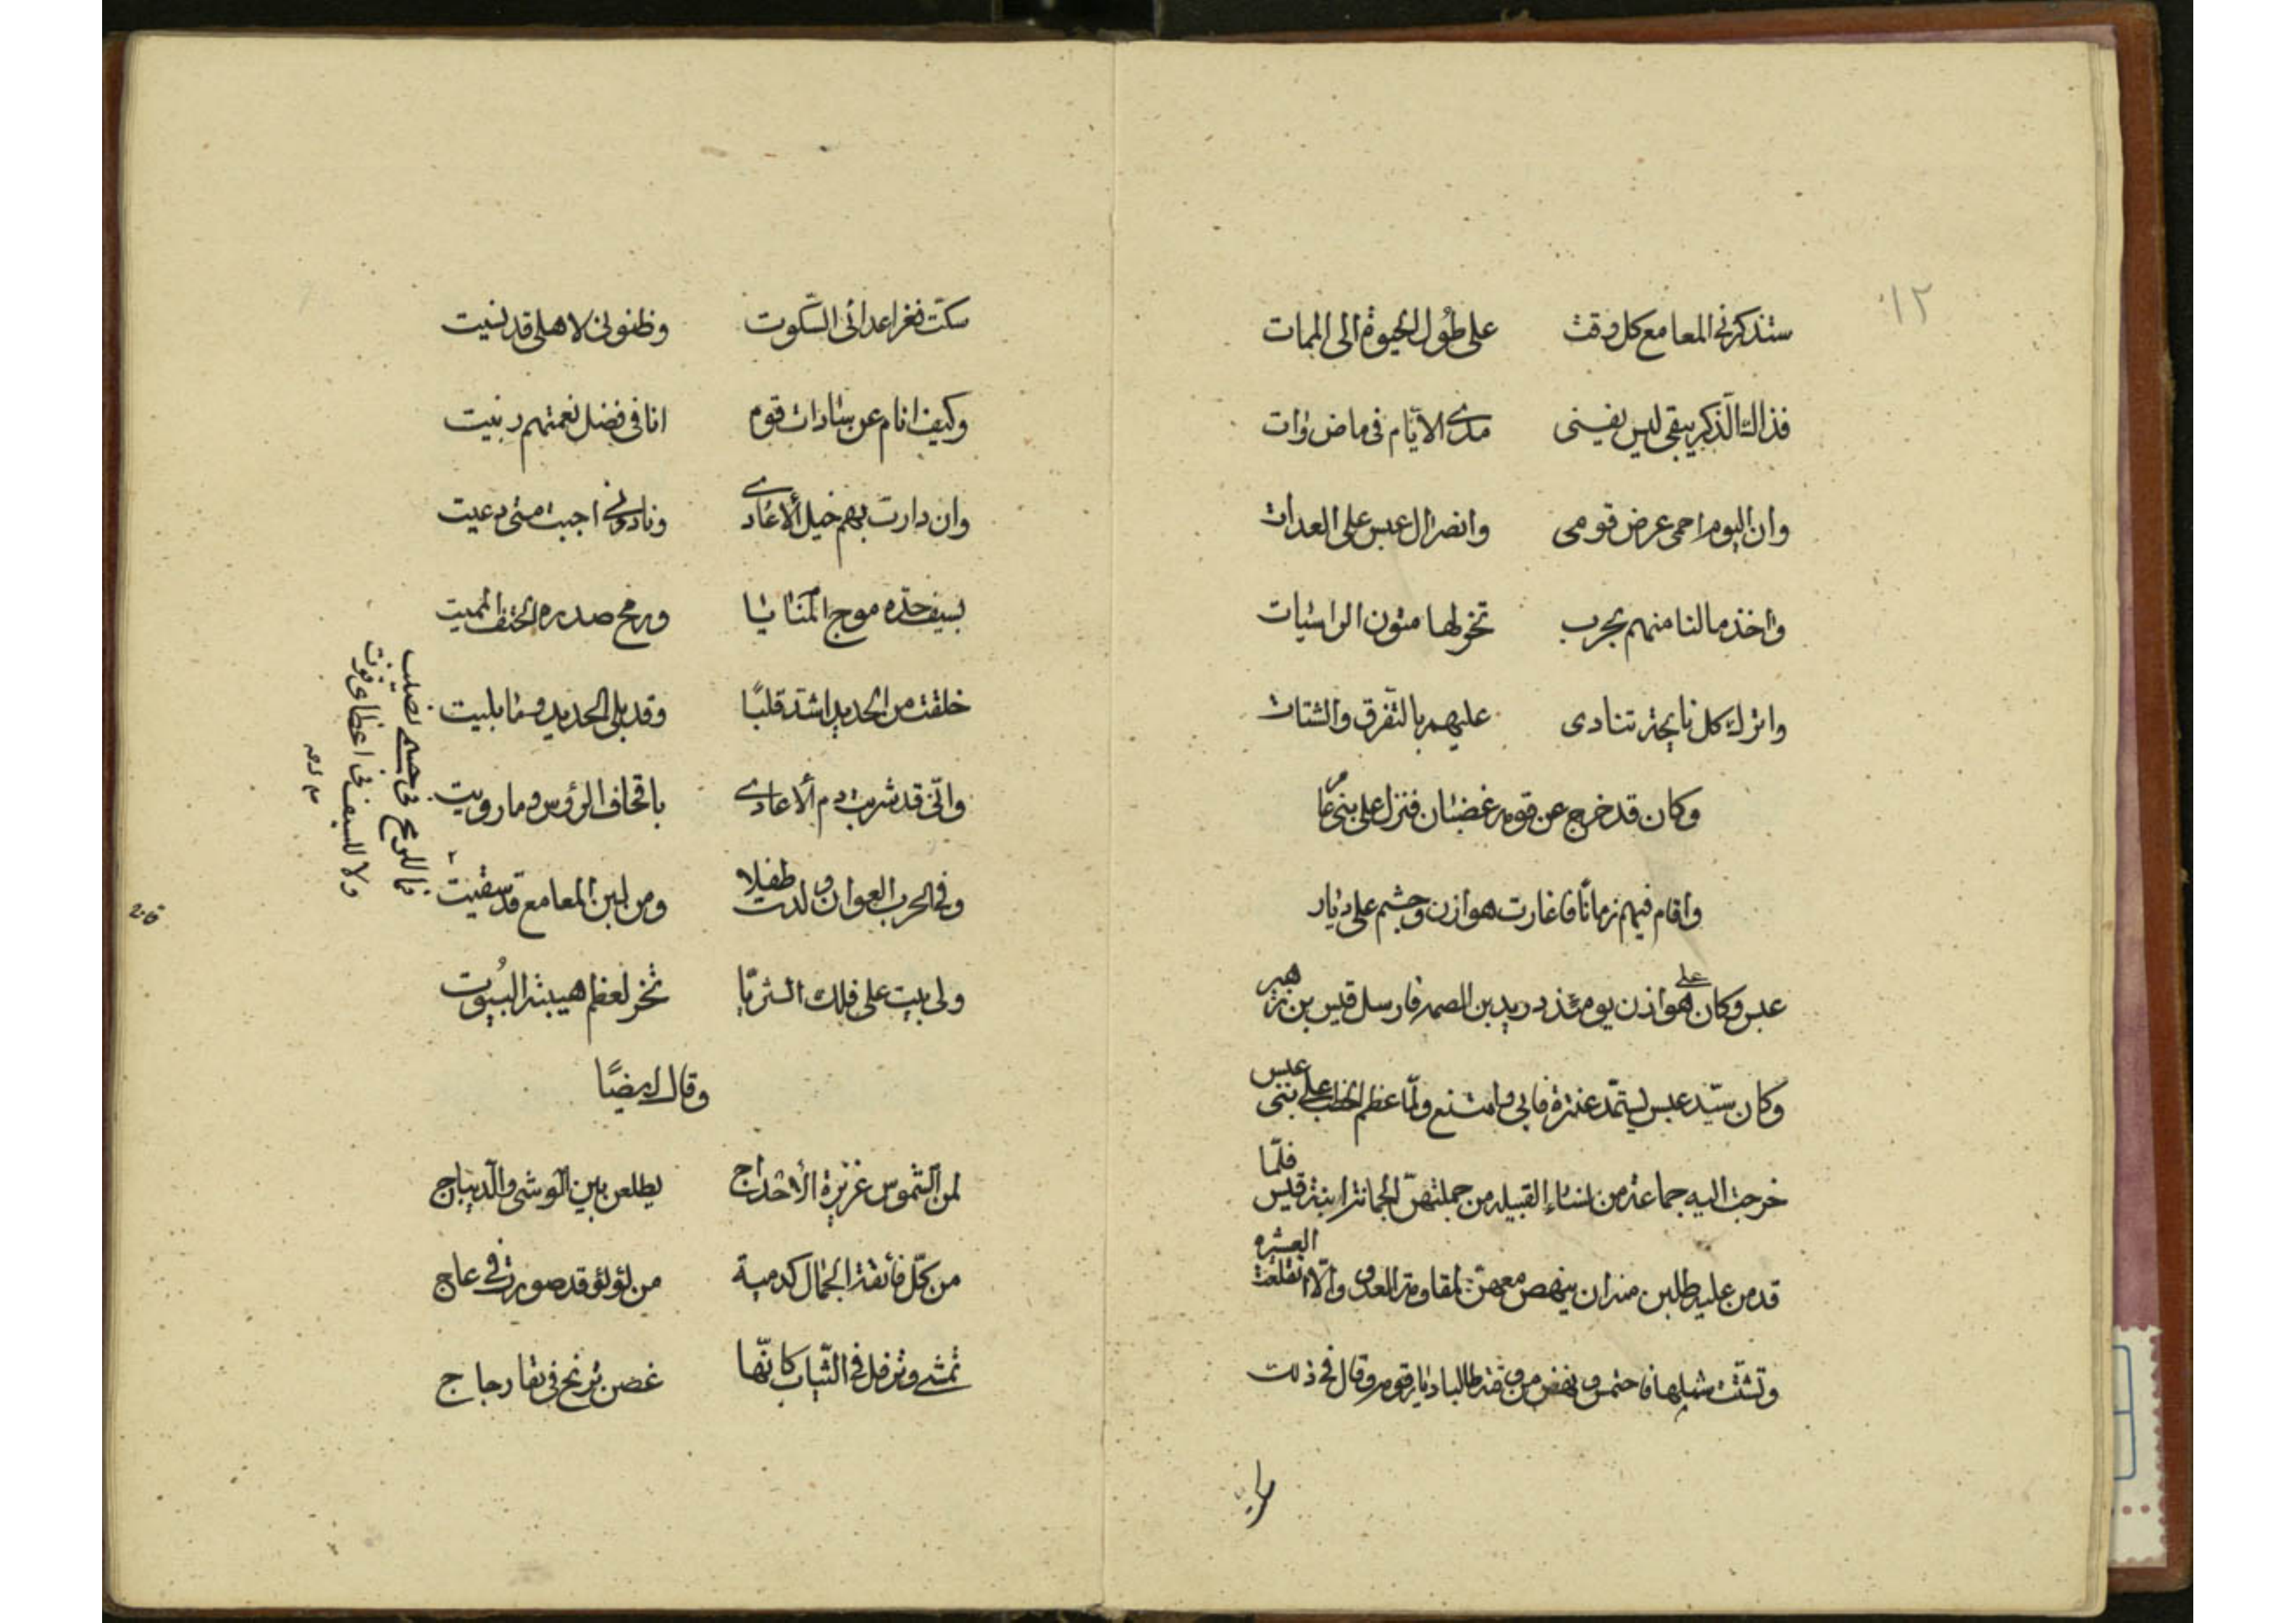 ١٢
ستذكرنى المعامع كل وقت على طُول الحيوة الى الممات
فذاك الذّكر يبقى ليس يفنى مدى الايّام فى ماض وات
وان اليوم احمى عرض قومى وانصر ال عبس على العدات
واخذ مالنا منهم بحرب تخرّ لها متون الراسيات
واترك كل نايحة تنادى عليهم بالتّفرق والشتات
وكان قد خرج عن قومه غضبان فنزل على بنى عامر
واقام فيهم زمانًا فاغارت هوازن وجشم على ديار
عبس وكان على هوازن يومئذ دريد بن الصمه فارسل قيس بن زهير
وكان سيّد عبس يستمّد عنترة فابى وامتنع ولمّا عظم الخطب على بنى عبس
خرجت اليه جماعة من نساء القبيله من جملتهنّ الجمانة ابنة قيس فلمّا
قدمن عليه طلبن منه ان ينهض معهنّ لمقاومة العدو والّا انقلعت العشيره
وتشتّت شملها فاحتمس ونهض من وقته طالبا ديار قومه وقال فى ذلك
سكتّ فغر اعدائى السّكوت وظنونى لاهلى قد نسيت
وكيف انام عن سادات قوم انا فى فضل نعمتهم ربيت
وان دارت بهم خيل ألاعادى ونادونى اجبت متى دعيت
بسيف حدّه موج المنايا ورمح صدره الحتف المميت
خلقت من الحديد اشدّ قلبًا وقد بلى الحديد وما بليت
وانّى قد شربت دم ألاعادى باقحاف الرؤس وما رويت
وفى الحرب العوان ولدت طفلا ومن لبن المعامع قد سقيت
فما للرمح فى جسمى نصيب
ولا للسيف فى اعضاى قوت
ولى بيت على فلك الثريّا تخر لعظم هيبته البُيوت
وقال ايضًا
لمن الشّموس عزيزة الأحداج يطلعن بين الوشى والدّيباج
من كلّ فائقة الجمال كدمية من لؤلؤ قد صورت فى عاج
تمشى وترفل فى الثّياب كانّها غصن ترنح فى نقا رجاج